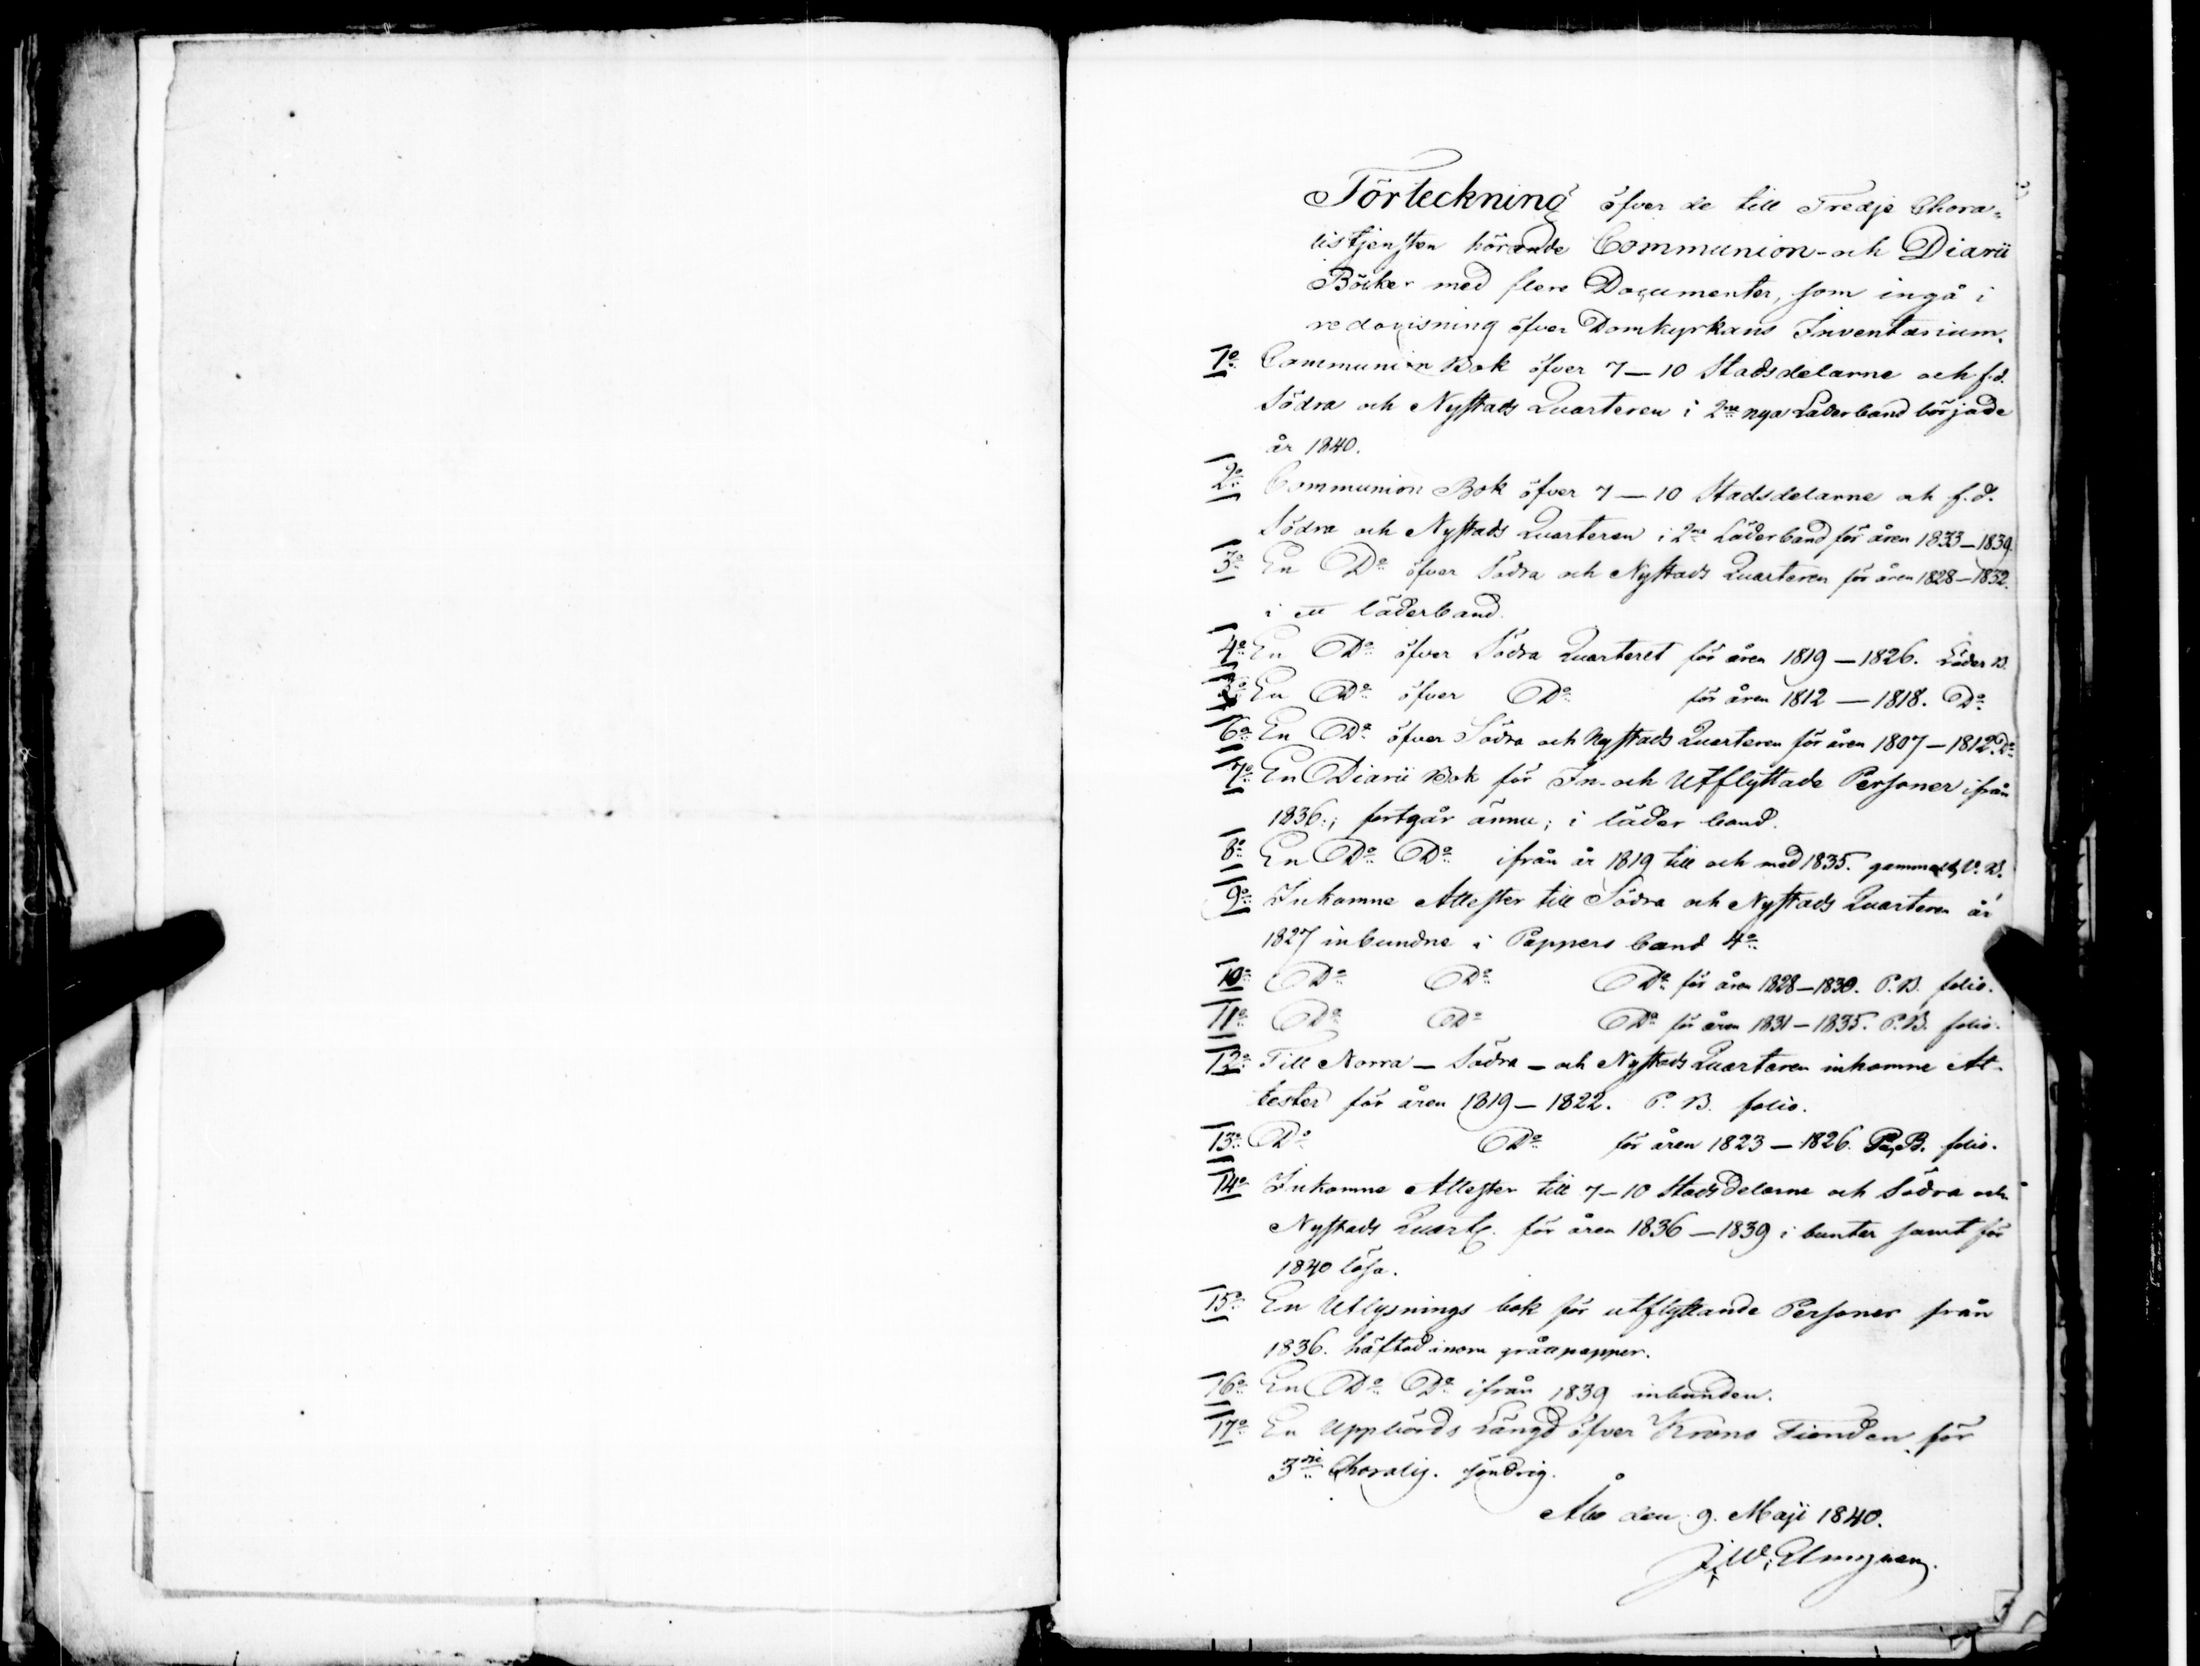 Förteckning öfver de till Tredje Chora-
listjensten hörande Communion- och Diarii
Böcker med flere Documenter, som ingå i
redovisning öfver Domkyrkans Inventarium.
1o Communion Bok öfver 7–10 Stadsdelarne och f.d.
Södra och Nystads Quarteren i 2ne nya Läderband började
år 1840.
2o Communion Bok öfver 7–10 Stadsdelarne och f.d.
Södra och Nystads Quarteren i 2ne Läderband för åren 1833–1839.
3o En Do öfver Södra och Nystads Quarteren för åren 1828–1832.
i ett läderband.
4o En Do öfver Södra Quarteret för åren 1819–1826. Läder B.
5o En Do öfver Do för åren 1812–1818. Do
6o En Do öfver Södra och Nystads Quarteren för åren 1807–1812. Do
7o En Diarii Bok för In- och Utflyttade Personer ifrån
1836.; fortgår ännu; i läder band.
8o En Do Do ifrån år 1819 till och med 1835. gammalt L. B.
9o Inkomne Attester till Södra och Nystads Quarteren år
1827 inbundne i Pappers band 4o
10o Do Do Do för åren 1828–1830. P.B. folio.
11o Do Do Do för åren 1831–1835. P.B. folio.
12o Till Norra – Södra – och Nystads Quarteren inkomne At-
tester för åren 1819–1822. P. B. folio.
13o Do Do för åren 1823–1826. P. B. folio.
14o Inkomne Attester till 7–10 Stadsdelarne och Södra och
Nystads Quart. för åren 1836–1839 i bunter samt för
1840 lösa.
15o En Utlysnings bok för utflyttande Personer från
1836. häftad inom gråttpapper.
16o En Do Do ifrån 1839 inbunden.
17o En Uppbörds Längd öfver Krono Tionden för
3die Choralisj. söndrig.
Åbo den 9. Maji 1840.
J. W. Elmgren.